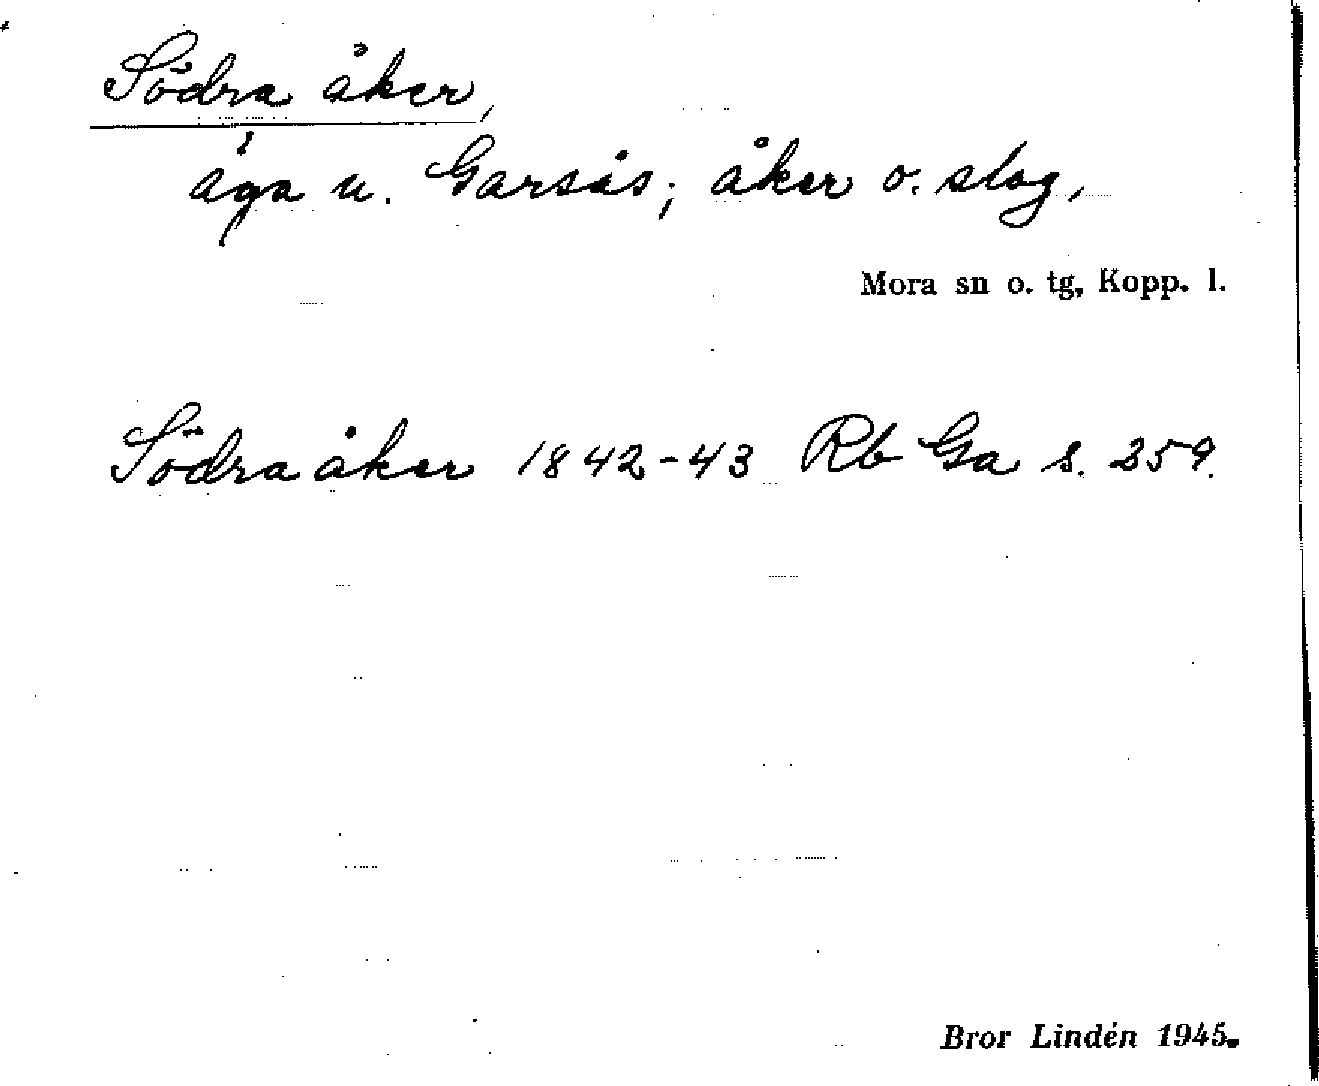 Södra åker,
äga u. Garsås; åker o. slog,
Mora sn o. tg, Kopp. l.
Södra åker 1842-43 Rb Ga s. 259.
Bror Lindén 1945.